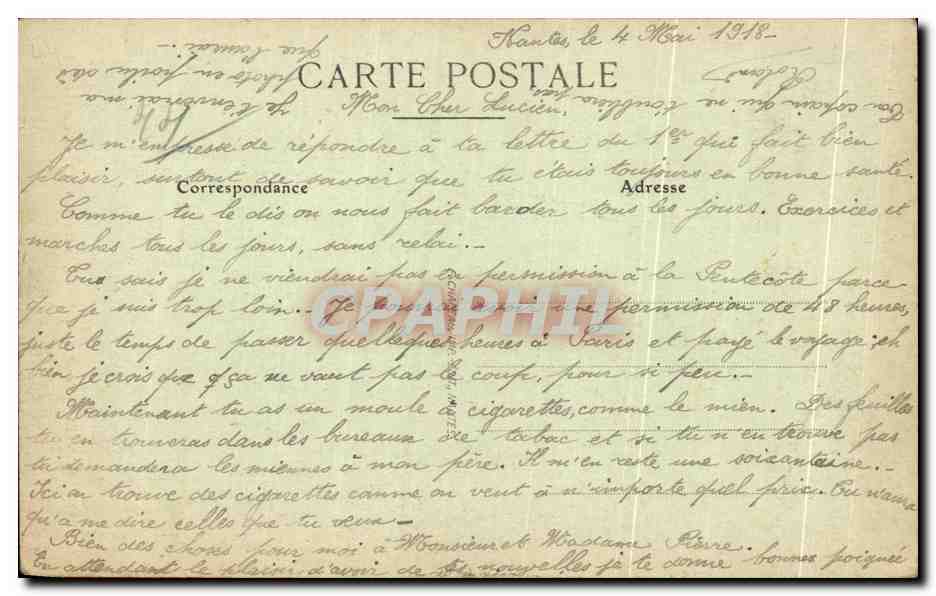 Nantes, le 4 Mai 1918-
CARTE POSTALE
Mon Cher Lucien,
Je m'empresse de répondre à ta lettre du 1er qui fait bien
plaisir, surtout de savoir que tu étais toujours en bonne santé.
Correspondance
Adresse
Comme tu le dis on nous fait barder tous les jours. Exercices et
marches tous les jours, sans relai.-
Tu sais je ne viendrai pas en permission à la Pentecôte parce
que je suis trop loin. Je pourrai avoir une permission de 48 heures,
CPAPHIL
juste le temps de passer quelleques heures à Paris et payé le voyage; eh
bien je crois que ça ne vaut pas le coup, pour si peu.-
Maintenant tu as un moule à cigarettes, comme le mien. Des feuilles
tu en trouveras dans les bureaux de tabac et si tu n'en trouve pas
tu demandera les miennes à mon père. Il m'en reste une soixantaine.-
Ici on trouve des cigarettes comme on veut à n'importe quel prix. Tu n'aura
qu'a me dire celles que tu veux-
Bien des choses pour moi à Monsieur et Madame Pierre.
En attendant le plaisir d'avoir de tes nouvelles je te donne bonnes poignée
Ton copain qui ne t'oubliera pas
Roland
Je t'enverrai ma
photo en poilu dès
que l'aurai.-